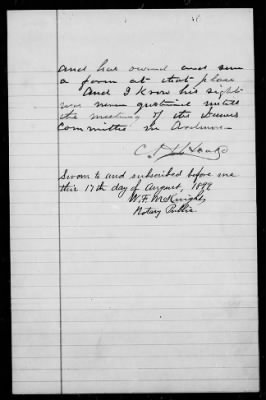 and has owned and run
a farm at that place
And I know his right
was never questioned until
the meeting of the Dawes
Committee in Ardmore
Sworn to and subscribed before me
this 17th day of August, 1898
W.F. McKnight,
Notary Public